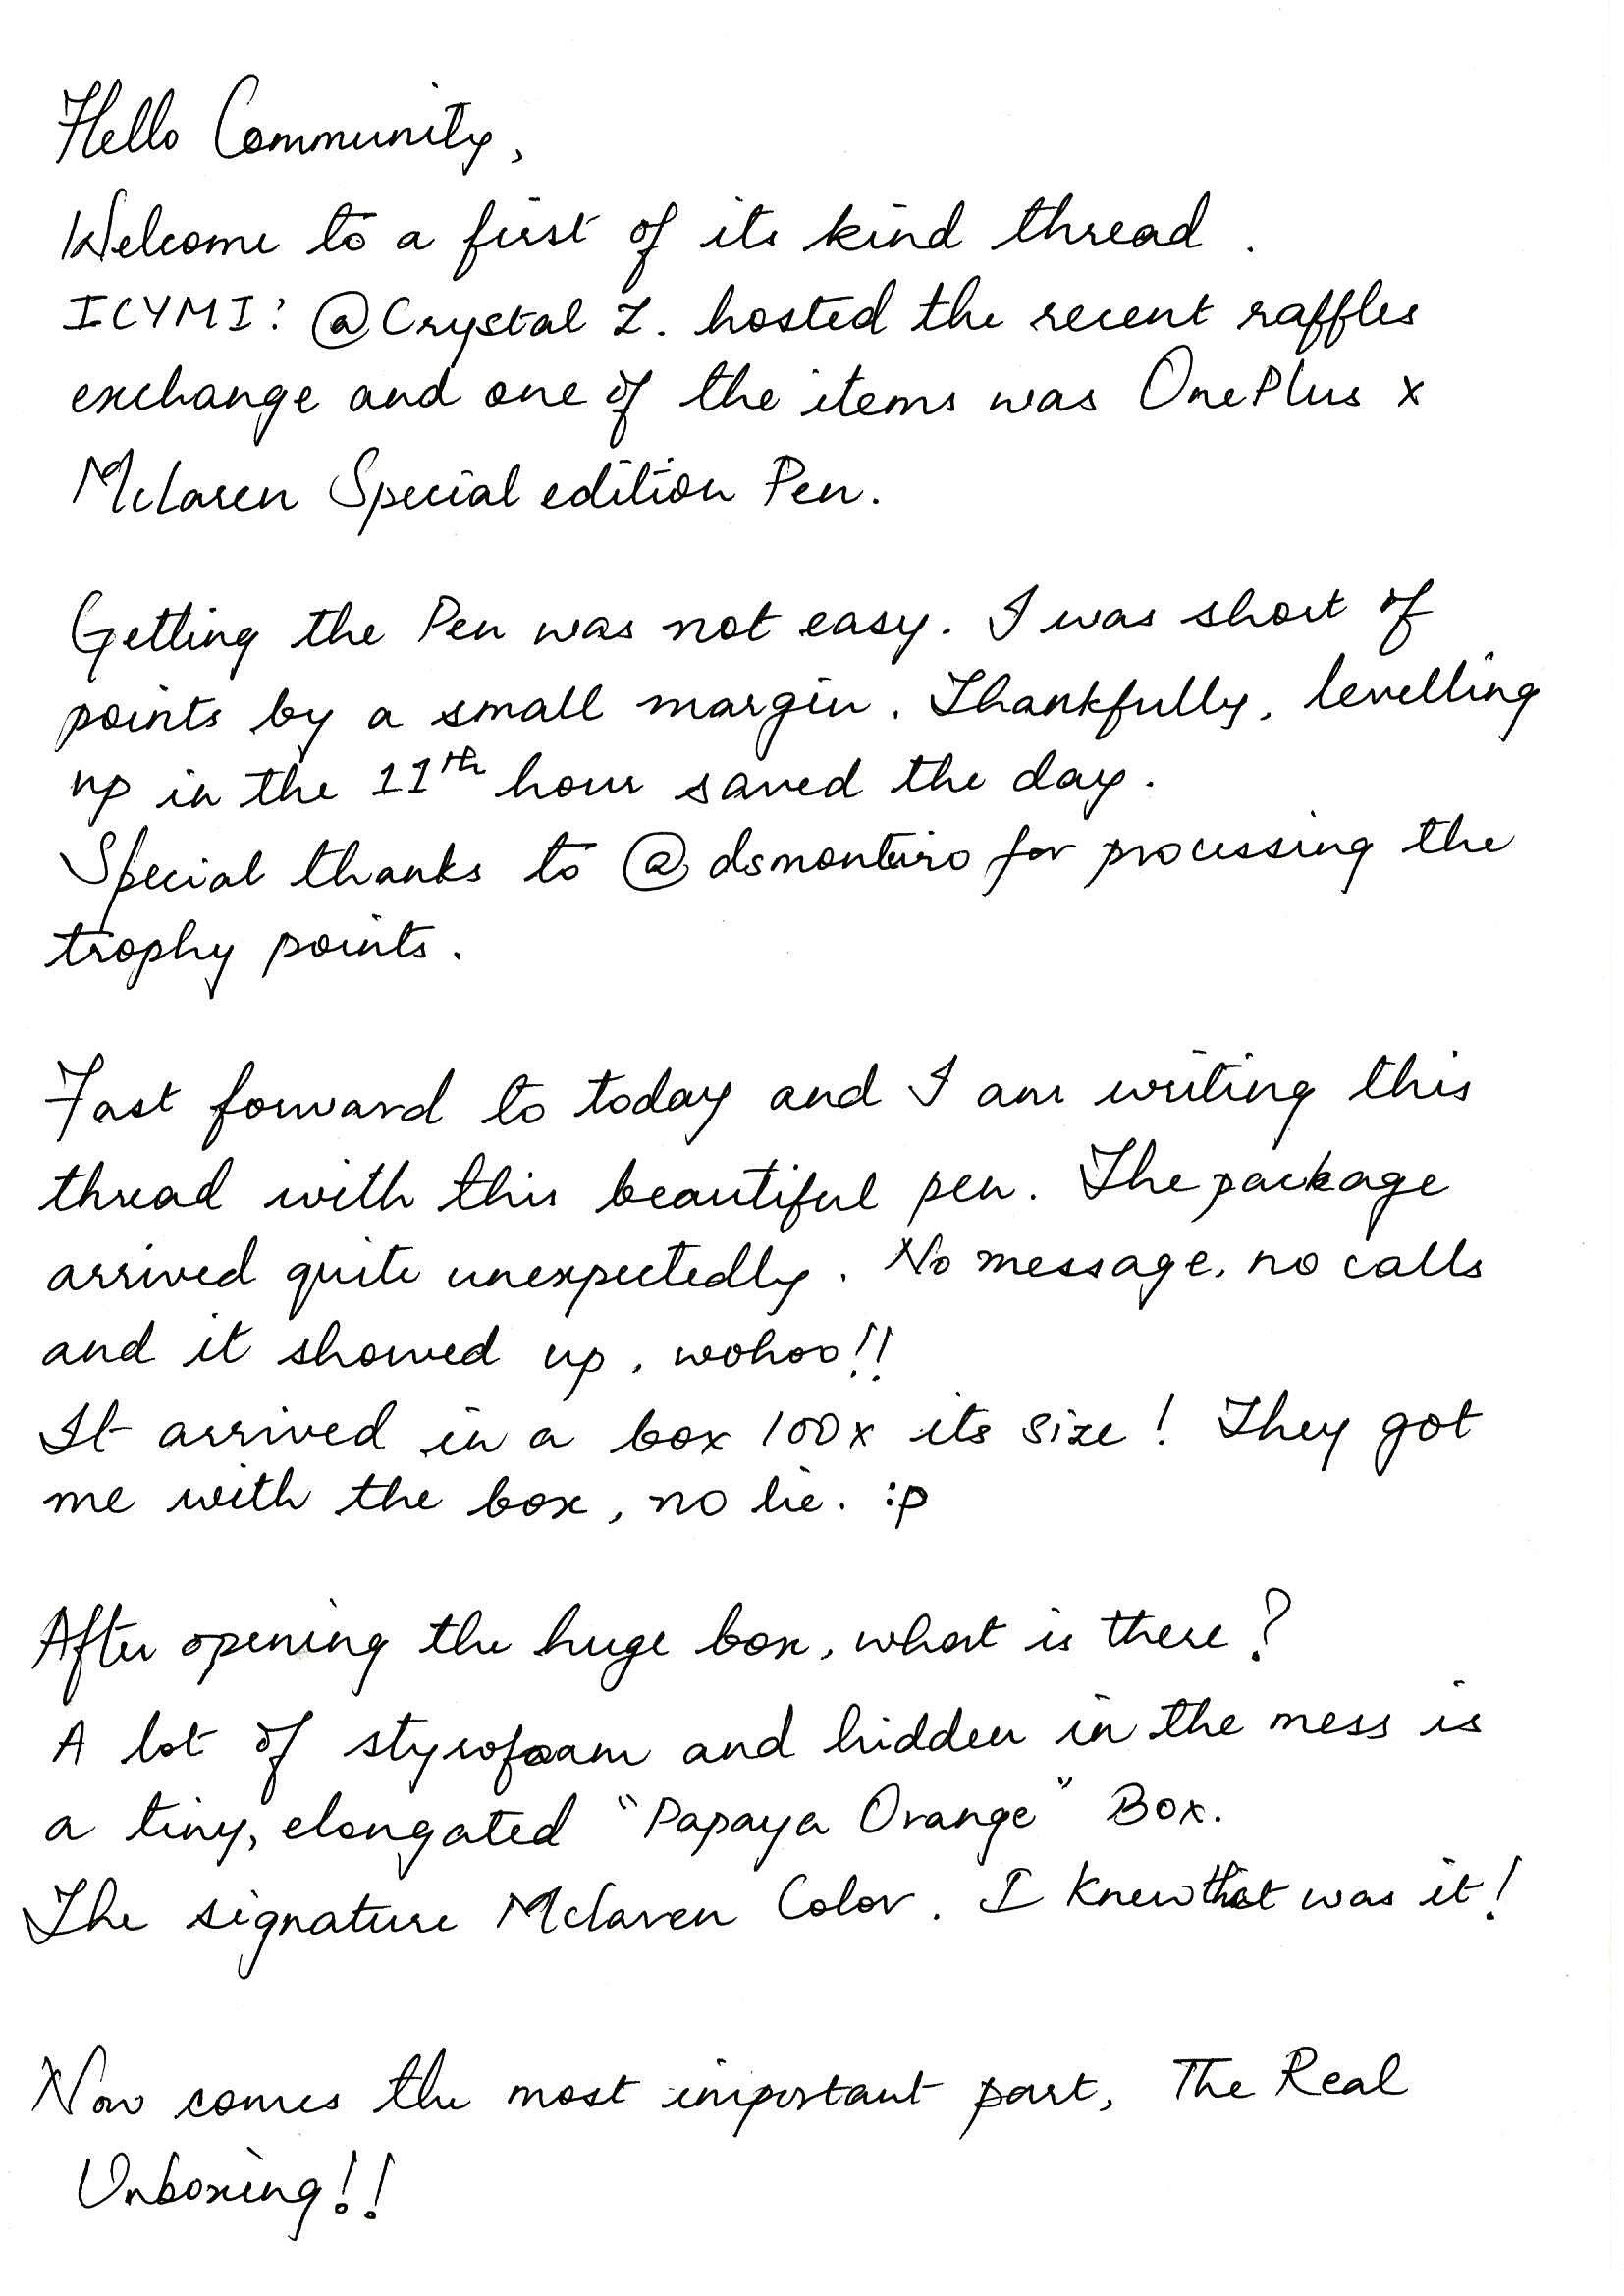 Hello Community,
Welcome to a first of its kind thread.
ICYMI: @Crystal Z. hosted the recent raffles
exchange and one of the items was OnePlus x
McLaren Special edition Pen.
Getting the Pen was not easy. I was short of
points by a small margin. Thankfully, levelling
up in the 11th hour saved the day.
Special thanks to @dsmonteiro for processing the
trophy points.
Fast forward to today and I am writing this
thread with this beautiful pen. The package
arrived quite unexpectedly. No message, no calls
and it showed up, wohoo!!
It arrived in a box 100x its size! They got
me with the box, no lie. :p
After opening the huge box, what is there?
A lot of styrofoam and hidden in the mess is
a tiny, elongated "Papaya Orange" Box.
The signature Mclaren Color. I knew that was it!
Now comes the most important part, The Real
Unboxing!!